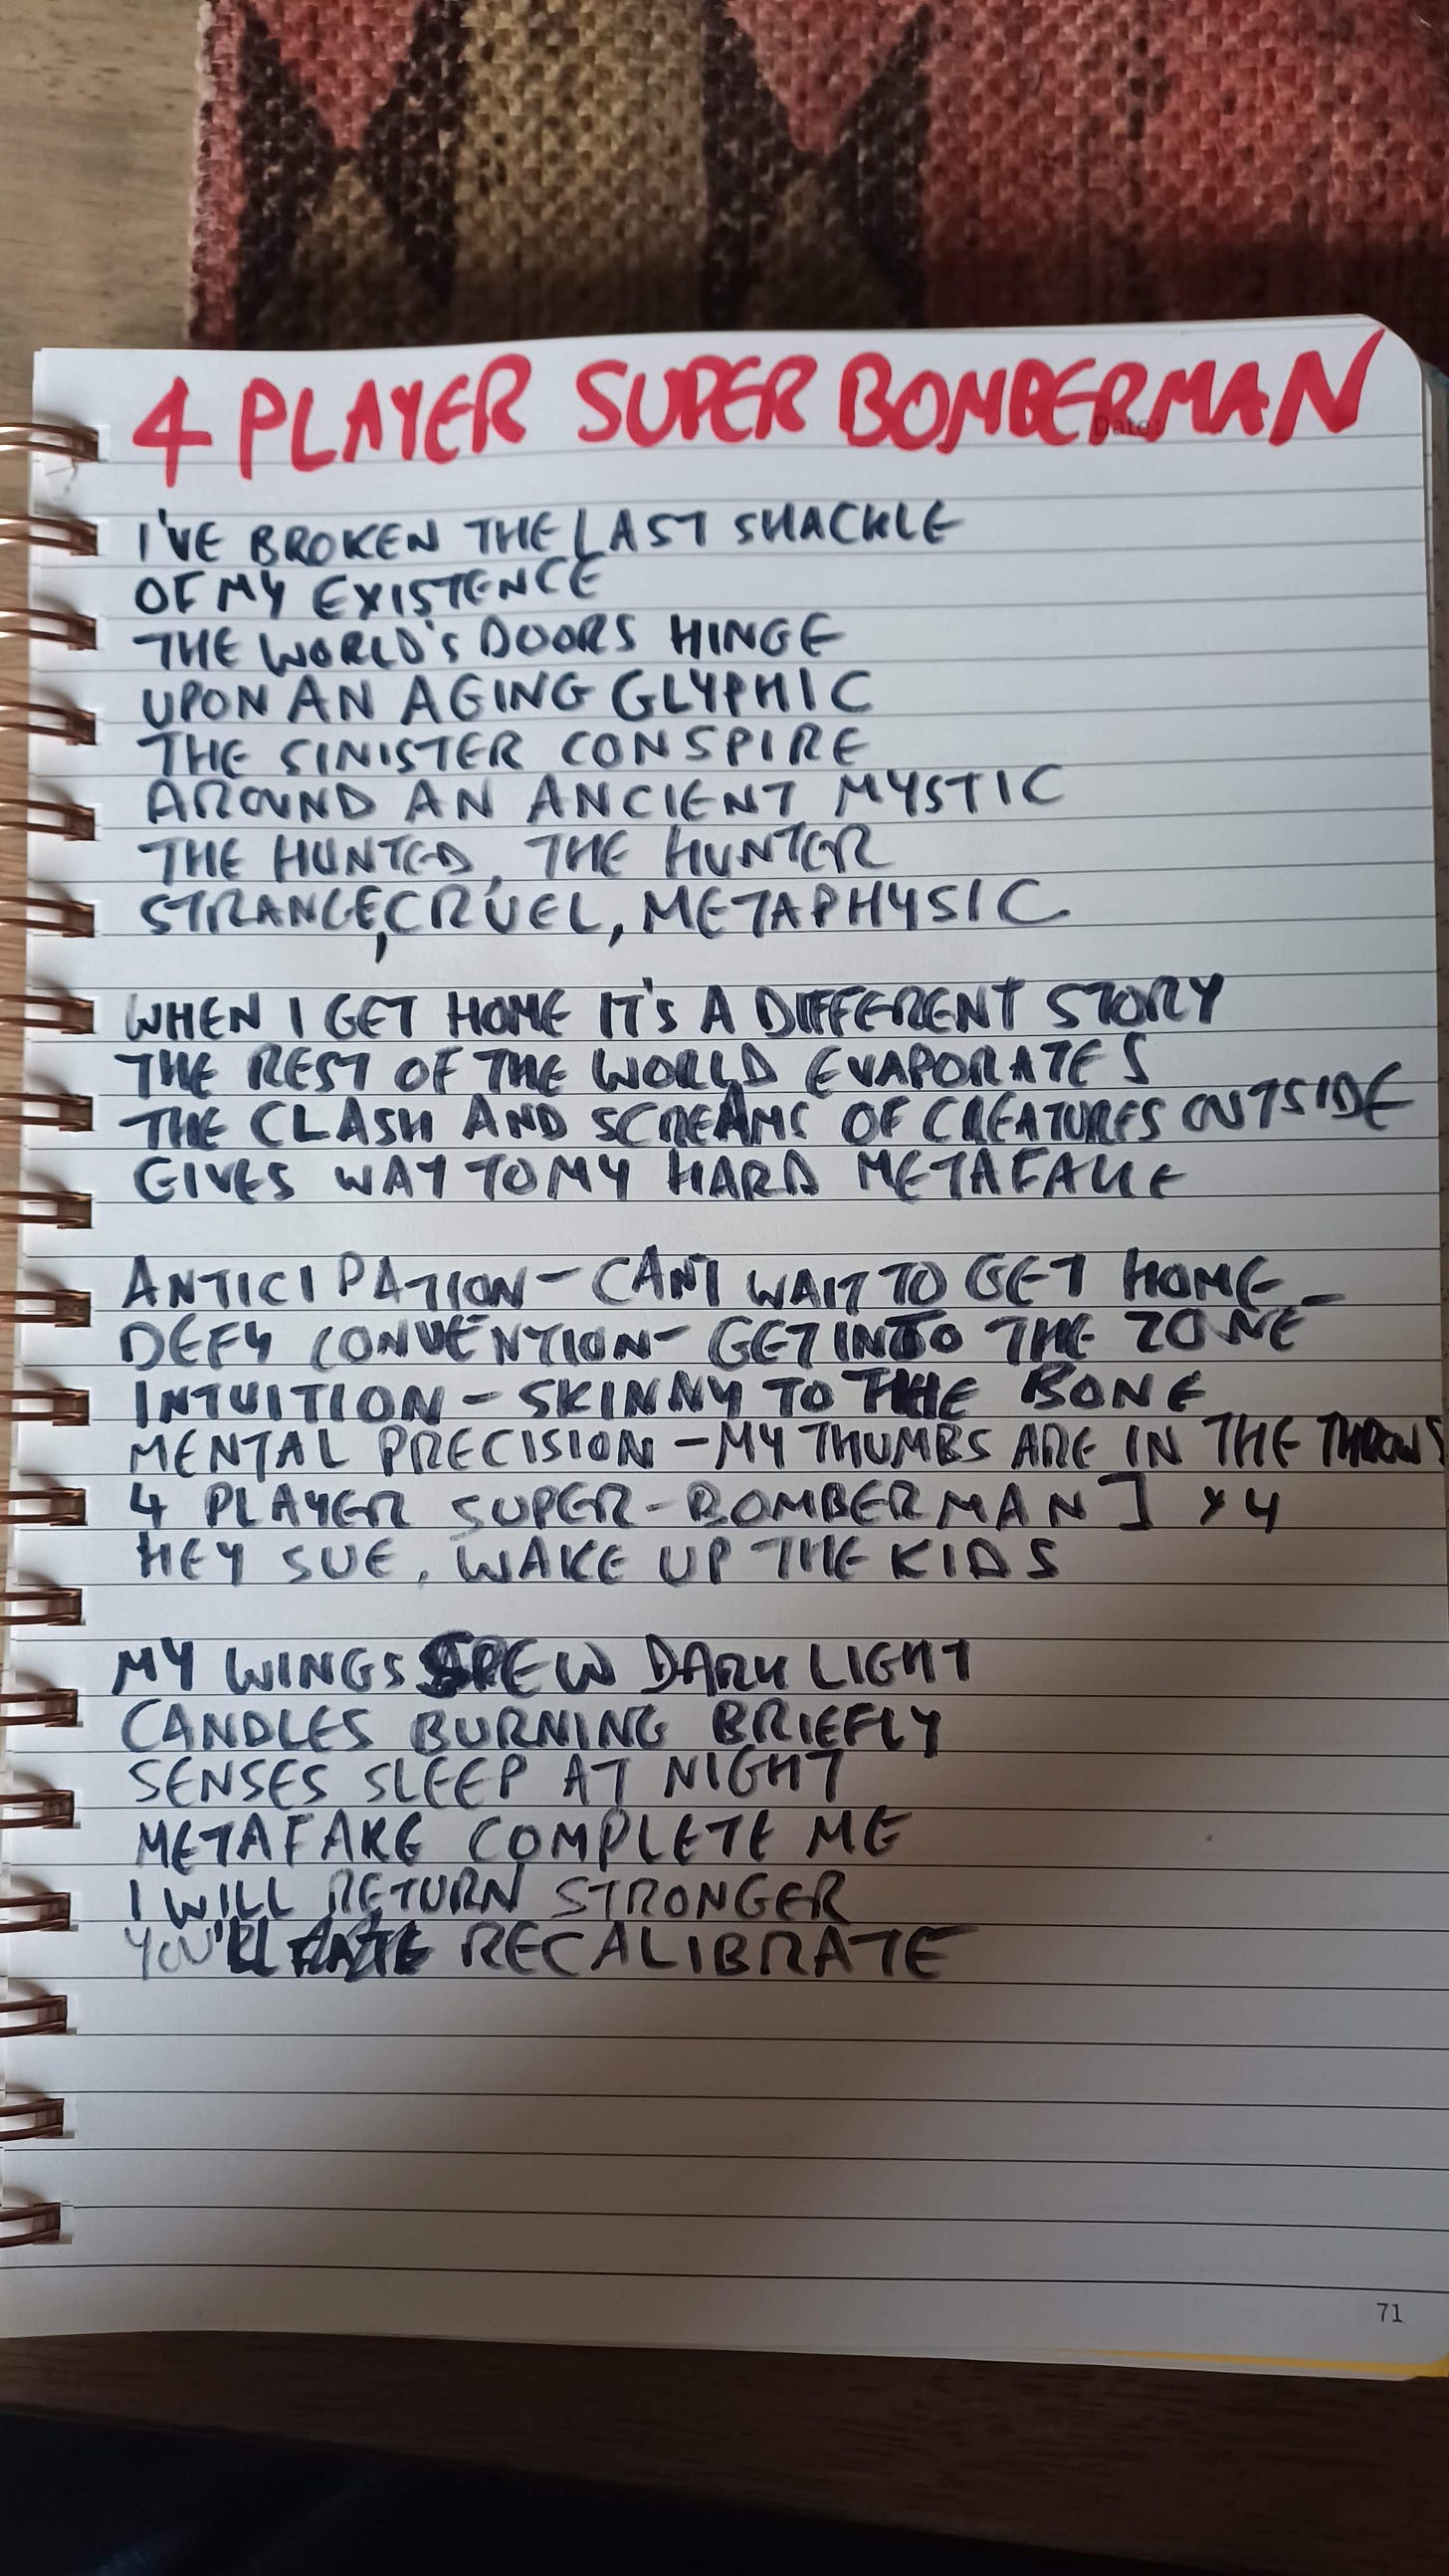 4 PLAYER SUPER BOMBERMAN
Date:
I'VE BROKEN THE LAST SHACKLE
OF MY EXISTENCE
THE WORLD'S DOORS HINGE
UPON AN AGING GLYPHIC
THE SINISTER CONSPIRE
AROUND AN ANCIENT MYSTIC
THE HUNTED, THE HUNTER
STRANGE, CRUEL, METAPHYSIC
WHEN I GET HOME IT'S A DIFFERENT STORY
THE REST OF THE WORLD EVAPORATES
THE CLASH AND SCREAMS OF CREATURES OUTSIDE
GIVES WAY TO MY HARD METAFAKE
ANTICIPATION - CAN'T WAIT TO GET HOME -
DEFY CONVENTION - GET INTO THE ZONE
INTUITION - SKINNY TO THE BONE
MENTAL PRECISION - MY THUMBS ARE IN THE THROWS
4 PLAYER SUPER-BOMBERMAN ] x4
HEY SUE, WAKE UP THE KIDS
MY WINGS SPEW DARK LIGHT
CANDLES BURNING BRIEFLY
SENSES SLEEP AT NIGHT
METAFAKE COMPLETE ME
I WILL RETURN STRONGER
YOU'LL RECALIBRATE
71